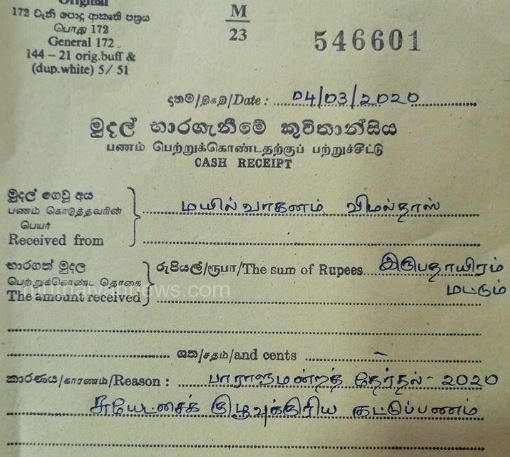 Original
172 වැනි පොදු ආකෘති පත්‍රය
பொது 172
General 172
144 – 21 orig.buff &
(dup.white) 5/ 51
M
23
546601
දිනම්/திகதி/Date : 04/03/2020
මුදල් භාරගැනීමේ කුවිතාන්සිය
பணம் பெற்றுக்கொண்டதற்குப் பற்றுச்சீட்டு
CASH RECEIPT
මුදල් ගෙවූ අය
பணம் கொடுத்தவரின்
பெயர்
Received from
மயில்வாகனம் விமல்தாஸ்
භාරගත් මුදල
பெற்றுக்கொண்ட தொகை
The amount received
රුපියල්/ரூபா/The sum of Rupees இருபதாயிரம்
மட்டும்
ශත/சதம்/and cents
කාරණය/காரணம்/Reason : பாராளுமன்றத் தேர்தல் - 2020
சுயேட்சைக் குழுவுக்குரிய கட்டுப்பணம்